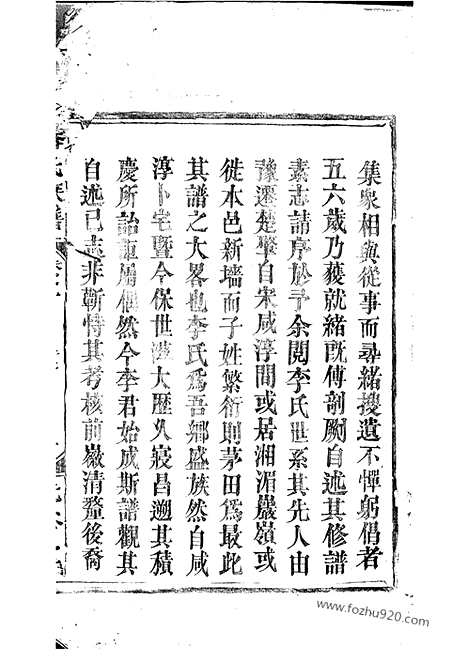 集衆相與從事而尋緒搜遺不憚躬倡者
五六歲乃薐就緒旣傅剞劂自述其修譜
素志請序於予余閱李氏世系其先人由
豫遷楚肇自宋咸淳間或居湘湄巖嶺或
徙本邑新墻而子姓繁衍則茅田爲最此
其譜之大畧也李氏爲吾鄉盛族然自咸
淳卜宅暨今保世滋大歷久寢昌遡其積
慶所詒詎屬偶然今李君始成斯譜觀其
自述己志非蘄恃其考核前徽清釐後裔
氏族譜
www.fozhu920.com